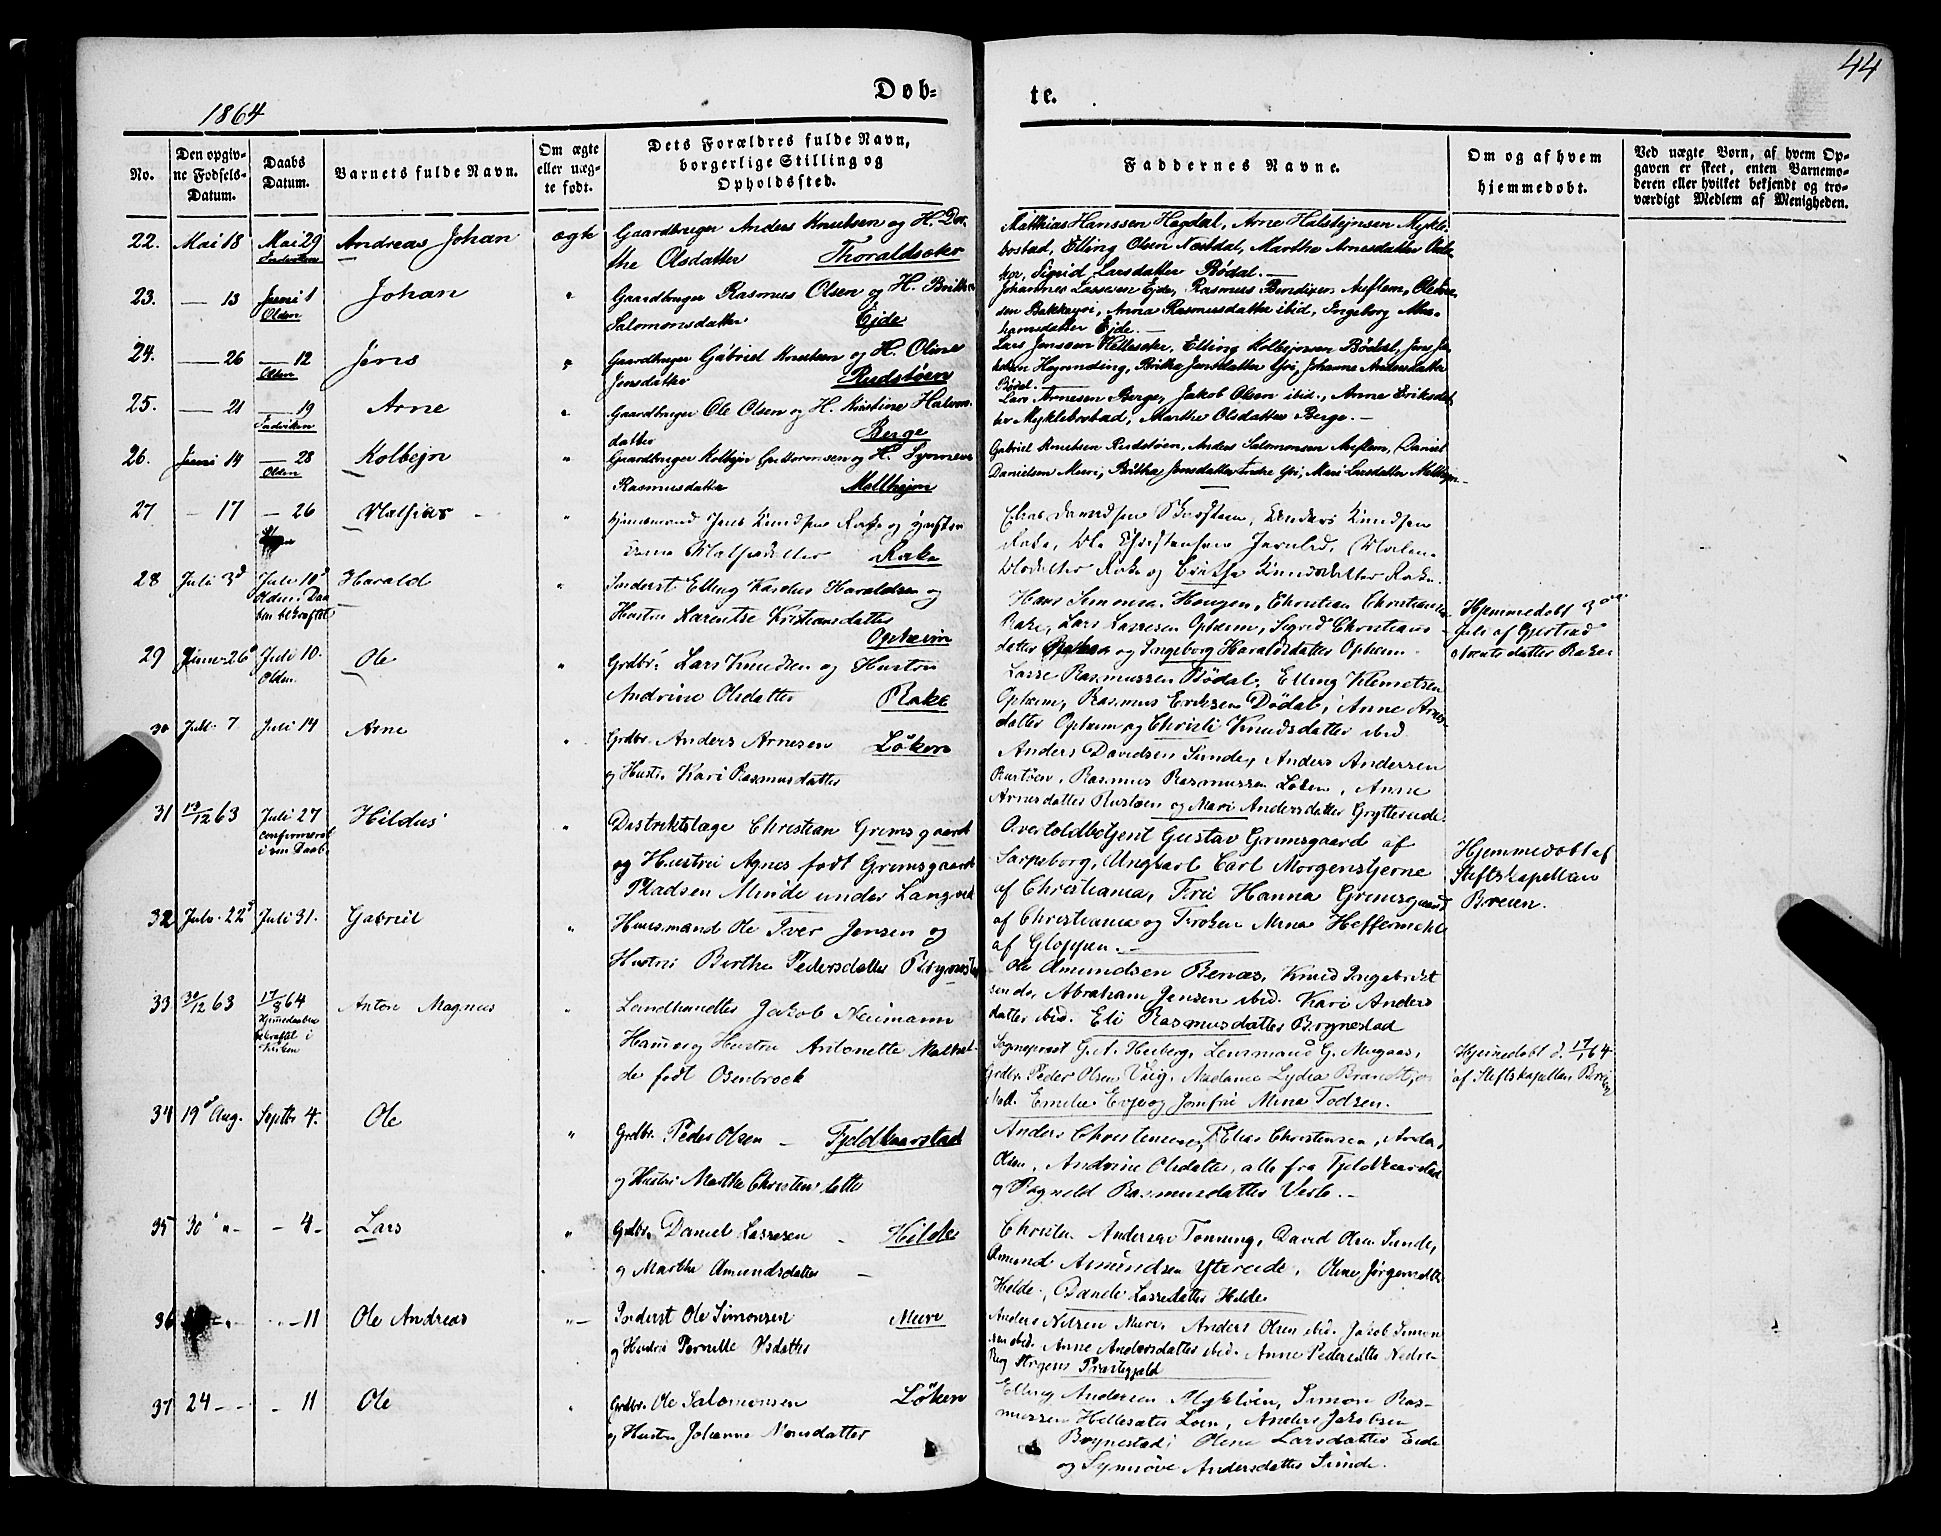 44
1864
Døb-
te.
No.
Den opgiv-
ne Fødsels-
Datum.
Daabs
Datum.
Barnets fulde Navn.
Om ægte
eller uæg-
te født.
Dets Forældres fulde Navn,
borgerlige Stilling og
Opholdssted.
Faddernes Navne.
Om og af hvem
hjemmedøbt.
Ved uægte Børn, af hvem Op-
gaven er skeet, enten Barnemo-
deren eller hvilket bekjendt og tro-
værdigt Medlem af Menigheden.
22. Mai 18 Mai 29 Andreas Johan ægte
Indviken
Gaardbruger Anders Knutsen og H. Dor-
the Olsdatter Thoraldsoker
Matthias Hanssen Hagdal, Arne Halstejnsen Mykle-
bostad, Elling Olsen Nestdal, Marthe Arnesdatter
Sigrid Larsdatter Bødal.—
23. — 13 Juni 1 Johan "
Olden
Gaardbruger Rasmus Olsen og H. Brithe
Salomonsdatter Ejde
Johannes Lassesen Ejde, Rasmus Bendixen Aaflem,
sen Bakkeyri, Anna Rasmusdatter ibid, Ingeborg
Ejde.—
24. — 26 — 12 Jens "
Olden
Gaardbruger Gabriel Knutsen og H. Oline
Jensdatter Rudstøen
Lars Jenssen Hellesoter, Elling Kolbejnsen Bødal, Jens
Brithe Jensdatter Yri, Johanne Andersdatter
Bødal.—
25. — 21 — 19 Arne "
Indviken
Gaardbruger Ole Olsen og H. Kristine Halvors-
datter Berge
Lars Arnesen Berge, Jakob Olsen ibid., Anne Eriksdat-
ter Myklebostad, Marthe Olsdatter Berge.—
26. Juni 14 — 28 Kolbejn "
Olden
Gaardbruger Kolbejn Guttormsen og H. Synneve
Rasmusdatter Mellhejm
Gabriel Knutsen Rudstøen, Anders Salomonsen Aaflem, Daniel
Danielsen Muri, Brithe Jensdatter Indre Yri, Mari Larsdatter
27 — 17 — 26 Mathias "
Huusmand Jens Knudsen Rake og Hustru
Rake
Anders Knudsen
Rake, Ole Christensen
Olsdatter Rake og Brithe Knudsdatter Rake.
28 Juli 3d Juli 10d Harald "
Olden. Daa-
ben bekræftet
Inderst Elling Haraldsen og
Hustru Karentse Kristiansdatter
Opheim
Hans Simonsen Haugen, Christian Christiansen
Rake, Lars Lassesen Ophem, Sigrid Christians-
datter og Ingeborg Haraldsdatter Ophem.
Hjemmedøbt 3
Juli af Gjertrud
datter Rake.
29 Juni 26d Juli 10. Ole "
Olden.
Grdbr. Lars Knudsen og Hustru
Andrine Olsdatter Rake
Lasse Rasmussen Bødal, Elling Klemetsen
Ophem, Rasmus Eriksen Bødal, Anne Arnes-
datter Ophem og Christi Knudsdatter ibid
30 Juli 7 Juli 14 Arne "
Grdbr. Anders Arnesen Løken
og Hustru Kari Rasmusdatter
Anders Davidsen Sunde, Anders Andersen
Rustøen, Rasmus Rasmussen Løken, Anne
Arnesdatter Rustøen og Mari Andersdatter Grytterede.
31 13/12 63 Juli 27 Hildus "
confirmeret
i sin Daab.
Distriktslæge Christian Grimsgaard
og Hustru Agnes født Grimsgaard
Pladsen Minde under
Overtoldbetjent Gustav Grimsgaard af
Sarpsborg, Ungkarl Carl Morgenstjerne
af Christiania, Fru Hanna Grimsgaard
af Christiania og Frøken Mina Heffermehl
af Gloppen.—
Hjemmedøbt af
Stiftskapellan
Breien.
32 Juli 22d Juli 31. Gabriel "
Huusmand Ole Iver Jensen og
Hustru Berthe Pedersdatter
Ole Amundsen Benæs, Knud Ingebrigt-
sen do, Abraham Jensen ibid. Kari Anders
datter ibid. Eli Rasmusdatter Brynestad
33 30/12 63 17/8 64 Anton Magnus "
Hjemmedaaben
bekræftet i
Kirken
Landhandler Jakob Neumann
og Hustru Antonette Mathil-
de født Osenbrock
Sogneprest Heiberg, Lensmand G. Mugaas,
Grdbr. Peder Olsen Vaig. Madame Lydia Brandt,
Emelie og Jomfru Mina Todsen.
Hjemmedøbt d. 17/1 64
af Stiftskapellan Breien
34 19d Aug. Septbr 4. Ole "
Grdbr. Peder Olsen — Fjeldkaarstad
og Hustru Marthe Christensdatte
Anders Christensen, Elias Christensen, Anders
Olsen, Andrine Olsdatter, alle fra Fjeldkaarstad
og Ragnild Rasmusdatter
35 30d " - — 4 - Lars "
Grdbr. Daniel Lassesen — Hilde
og Marthe Amundsdatter —
Christen Andersen Tonning, David Olsen Sunde,
Amund Amundsen Ytreeide, Oline Jørgensdtt.
Hilde, Lassesdatter Hilde.
36 — 11 Ole Andreas "
Inderst Ole Simonsen Muri
og Hustru Pernille Olsdatter
Anders Nilsen Muri, Anders Olsen ibid. Jacob Simon-
sen ibid. Anne Andersdatter ibid. Anne Pedersdtte Nedre-
Præstegjeld
37 24 — — 11 Ole "
Grdbr. Ole Salomonsen Løken
og Hustru Johanne Monsdatter
Elling Andersen Mykløen, Simon Ras-
mussen Hellesæter Loen, Anders Jakobsen
Brynestad, Oline Larsdatter Eide
og Synnøve Andersdatter Sunde.